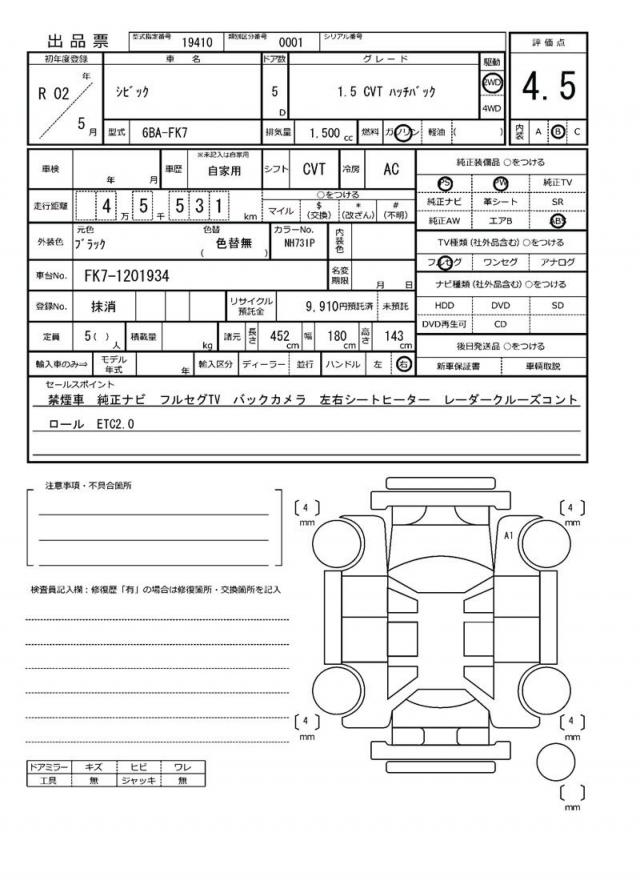 出品票 型式指定番号 19410 類別区分番号 0001 シリアル番号
評価点
4.5
内装 A B C
初年度登録 車名 ドア数 グレード 駆動
R 02 年 5 月 シビック 5 D 1.5 CVT ハッチバック 2WD 4WD
型式 6BA-FK7 排気量 1.500 cc 燃料 ガソリン 軽油 ( )
車検 年 月 車歴 ※未記入は自家用 自家用 シフト CVT 冷房 AC
走行距離 4 万 5 千 5 3 1 km ○をつける マイル $ (交換) * (改ざん) # (不明)
外装色 元色 ブラック 色替 ( 色替無 ) カラーNo. NH731P 内装色
車台No. FK7-1201934 名変期限 月 日
登録No. 抹消 リサイクル預託金 9,910円預託済 未預託
定員 5( )人 積載量 kg 諸元 長さ 452 cm 幅 180 cm 高さ 143 cm
輸入車のみ⇒ モデル年式 年 輸入区分 ディーラー 並行 ハンドル 左 右
純正装備品 ○をつける
PS PW 純正TV
純正ナビ 革シート SR
純正AW エアB ABS
TV種類(社外品含む)○をつける
フルセグ ワンセグ アナログ
ナビ種類(社外品含む)○をつける
HDD DVD SD
DVD再生可 CD
後日発送品 ○をつける
新車保証書 車輌取説
セールスポイント
禁煙車 純正ナビ フルセグTV バックカメラ 左右シートヒーター レーダークルーズコント
ロール ETC2.0
注意事項・不具合箇所
検査員記入欄:修復歴「有」の場合は修復箇所・交換箇所を記入
ドアミラー キズ ヒビ ワレ
工具 無 ジャッキ 無
[ 4 ] mm
[ 4 ] mm
A1
[ 4 ] mm
[ 4 ] mm
[ ] mm